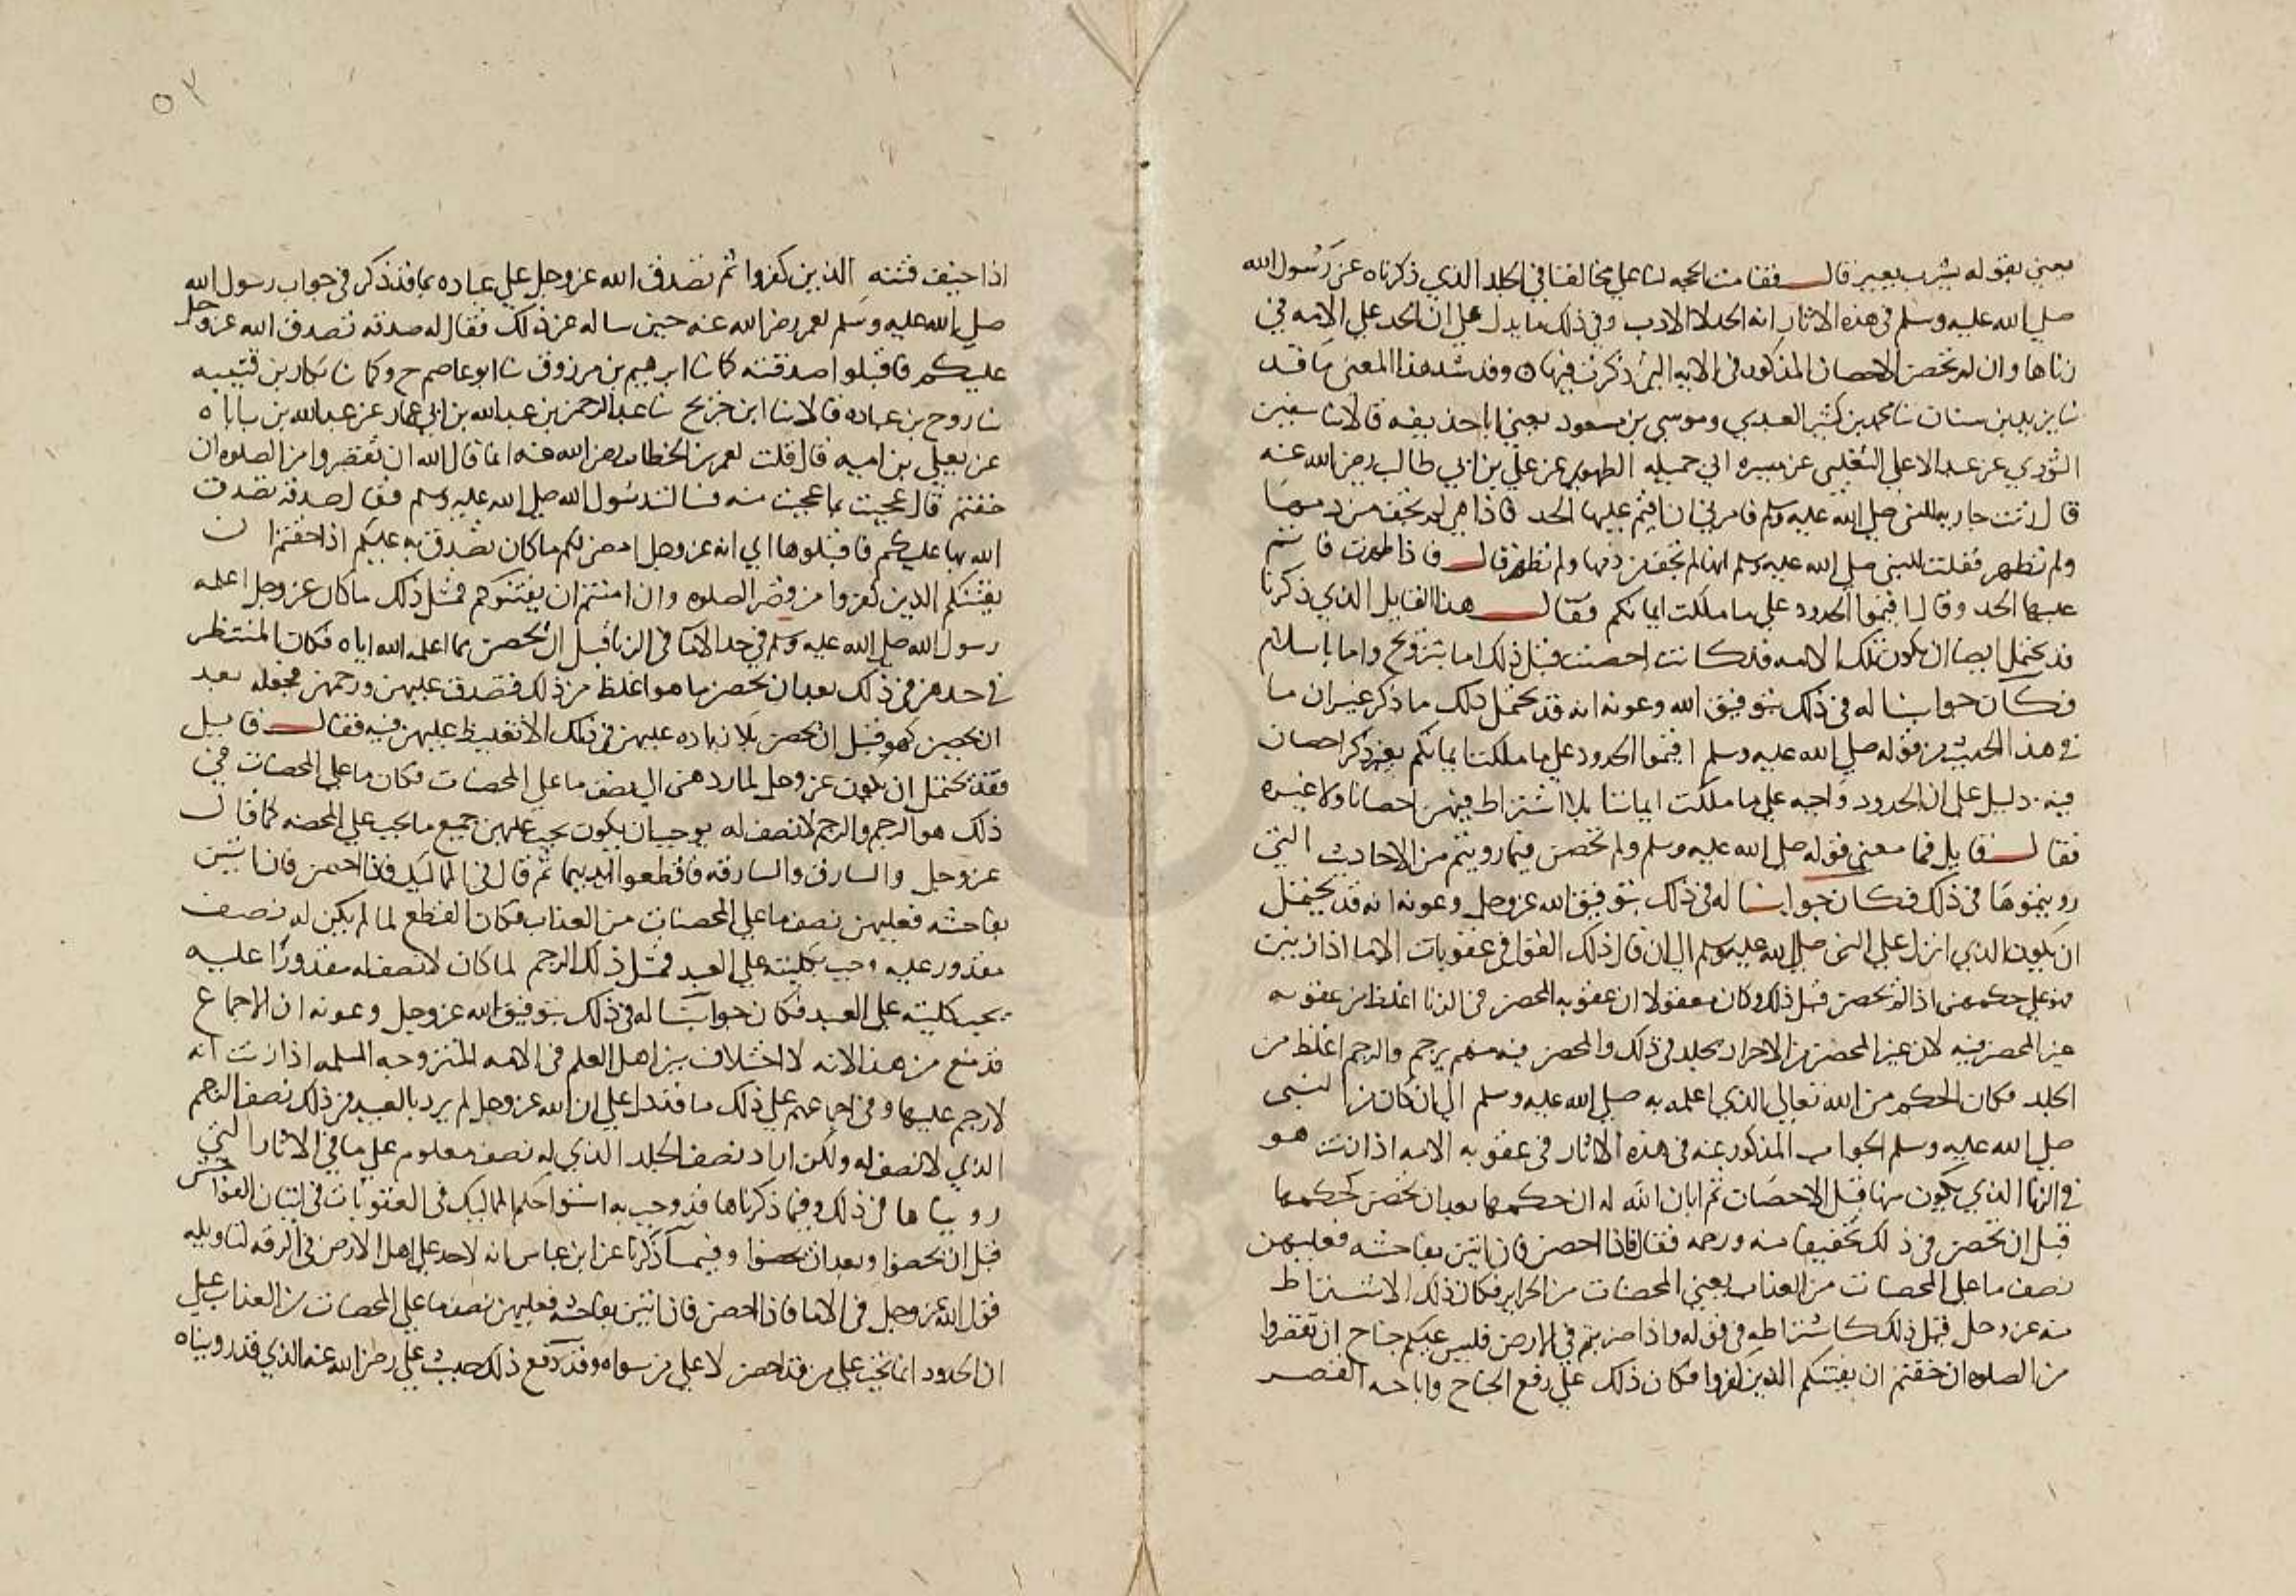 يعني بقوله يثرب بعيبر قال فقامت الحجه لنا علي مخالفنا في الجلد الذي ذكرناه عن رسول الله
صلي الله عليه وسلم في هذه الاثار انه الحد لا الادب وفي ذلك ما يدل علي ان الحد علي الامه في
زناها وان لم تحصن الاحصان المذكور في الايه التي ذكرت فيها ٥ وقد شد هذا المعني ما قد
نا يزيد بن سنان نا محمد بن كثير العبدي وموسي بن مسعود يعني ابا حذيفه قالا نا سفين
الثوري عن عبد الاعلي الثعلبي عن ميسره ابي جميله الطهوي عن علي بن ابي طالب رضي الله عنه
قال زنت جاريه للنبي صلي الله عليه وسلم فامرني ان اقيم عليها الحد فاذا هي لم تجف من دمها
ولم تطهر فقلت للنبي صلي الله عليه وسلم انها لم تجف من دمها ولم تطهر قال فاذا طهرت فاقم
عليها الحد وقال اقيموا الحدود علي ما ملكت ايمانكم فقال هذا القايل الذي ذكرنا
قد يحتمل ايضا ان يكون تلك الامه قد كانت احصنت قبل ذلك اما بتزويج واما باسلام
فكان جوابنا له في ذلك بتوفيق الله وعونه انه قد يحتمل ذلك ما ذكر غير ان ما
في هذا الحديث من قوله صلي الله عليه وسلم اقيموا الحدود علي ما ملكت ايمانكم بغير ذكر احصان
فيه دليل علي ان الحدود واجبه علي ما ملكت ايماننا بلا اشتراط فيهن احصانا ولا غيره
فقال قايل فما معني قوله صلي الله عليه وسلم ولم تحصن فيما رويتم من الاحاديث التي
رويتموها في ذلك فكان جوابنا له في ذلك بتوفيق الله عز وجل وعونه انه قد يحتمل
ان يكون الذي انزل علي النبي صلي الله عليه وسلم الي ان قال ذلك القول في عقوبات الاما اذا زنين
هو علي حكمهن اذا لم تحصن قبل ذلك وكان معقولا ان عقوبه المحصن في الزنا اغلظ من عقوبه
غير المحصن فيه لان غير المحصن من الاحرار يجلد في ذلك والمحصن فيه منهم يرجم والرجم اغلظ من
الجلد فكان الحكم من الله تعالي الذي اعلمه به صلي الله عليه وسلم الي ان كان من النبي
صلي الله عليه وسلم الجواب المذكور عنه في هذه الاثار في عقوبه الامه اذا زنت هو
في الزنا الذي يكون منها قبل الاحصان ثم ابان الله له ان حكمها بعد ان تحصن كحكمها
قبل ان تحصن في ذلك تخفيفا منه ورحمه فقال فاذا احصن فان اتين بفاحشه فعليهن
نصف ما علي المحصنات من العذاب يعني المحصنات من الحراير فكان ذلك الاشتراط
منه عز وجل فمثل ذلك كاشتراطه في قوله واذا ضربتم في الارض فليس عليكم جناح ان تقصروا
من الصلوه ان خفتم ان يفتنكم الذين كفروا فكان ذلك علي رفع الجناح واباحه القصر
٥٢
اذا خيف فتنه الذين كفروا ثم تصدق الله عز وجل علي عباده بما قد ذكر في جواب رسول الله
صلي الله عليه وسلم لعمر رضي الله عنه حين ساله عن ذلك فقال له صدقه تصدق الله عز وجل
عليكم فاقبلوا صدقته كما نا ابرهيم بن مرزوق نا ابو عاصم ح وكما نا بكار بن قتيبه
نا روح بن عباده قالا نا ابن جريج نا عبد الرحمن بن عبد الله بن ابي عمار عن عبد الله بن باباه
عن يعلي بن اميه قال قلت لعمر بن الخطاب رضي الله عنه انما قال الله ان تقصروا من الصلوه ان
خفتم قال عجبت مما عجبت منه فسالت رسول الله صلي الله عليه وسلم فقال صدقه تصدق
الله بها عليكم فاقبلوها اي انه عز وجل امضي لكم ما كان تصدق به عليكم اذا خفتم ان
يفتنكم الذين كفروا من قصر الصلوه وان امنتم ان يفتنوكم فمثل ذلك ما كان عز وجل اعلمه
رسول الله صلي الله عليه وسلم في حد الاما في الزنا قبل ان تحصن بما اعلمه الله اياه فكان المنتظر
في حدهن في ذلك بعد ان تحصن ما هو اغلظ من ذلك فتصدق عليهن ورحمهن فجعله بعد
ان تحصن كهو قبل ان تحصن بلا زياده عليهن في ذلك الا تغليظ عليهن فيه فقال قايل
فقد يحتمل ان يكون عز وجل لما ردهن الي نصف ما علي المحصنات فكان ما علي المحصنات في
ذلك هو الرجم والرجم لا نصف له يوجب ان يكون يجب عليهن جميع ما يجب علي المحصنه كما قال
عز وجل والسارق والسارقه فاقطعوا ايديهما ثم قال في المماليك فاذا احصن فان اتين
بفاحشه فعليهن نصف ما علي المحصنات من العذاب فكان القطع لما لم يكن له نصف
مقدور عليه وجب بكليته علي العبد فمثل ذلك الرجم لما كان لا نصف له مقدورا عليه
يجب كليته علي العبد فكان جوابنا له في ذلك بتوفيق الله عز وجل وعونه ان الاجماع
قد منع من هذا لانه لا اختلاف بين اهل العلم في الامه المتزوجه المسلمه اذا زنت انه
لا رجم عليها وفي اجماعهم علي ذلك ما قد دل علي ان الله عز وجل لم يرد بالعبيد في ذلك نصف الرجم
الذي لا نصف له ولكن اراد نصف الجلد الذي له نصف معلوم علي ما في الاثار التي
رويناها في ذلك وفيما ذكرناها قد وجب به استوا حكم المماليك في العقوبات في اتيان الفواحش
قبل ان يحصنوا وبعد ان يحصنوا وفيما ذكرنا عن ابن عباس انه لا حد علي اهل الارض في الرقه لتاويله
قول الله عز وجل في الاما فاذا احصن فان اتين بفاحشه فعليهن نصف ما علي المحصنات من العذاب علي
ان الحدود انما تجب علي من قد احصن لا علي من سواه وقد دفع ذلك حديث علي رضي الله عنه الذي قد رويناه